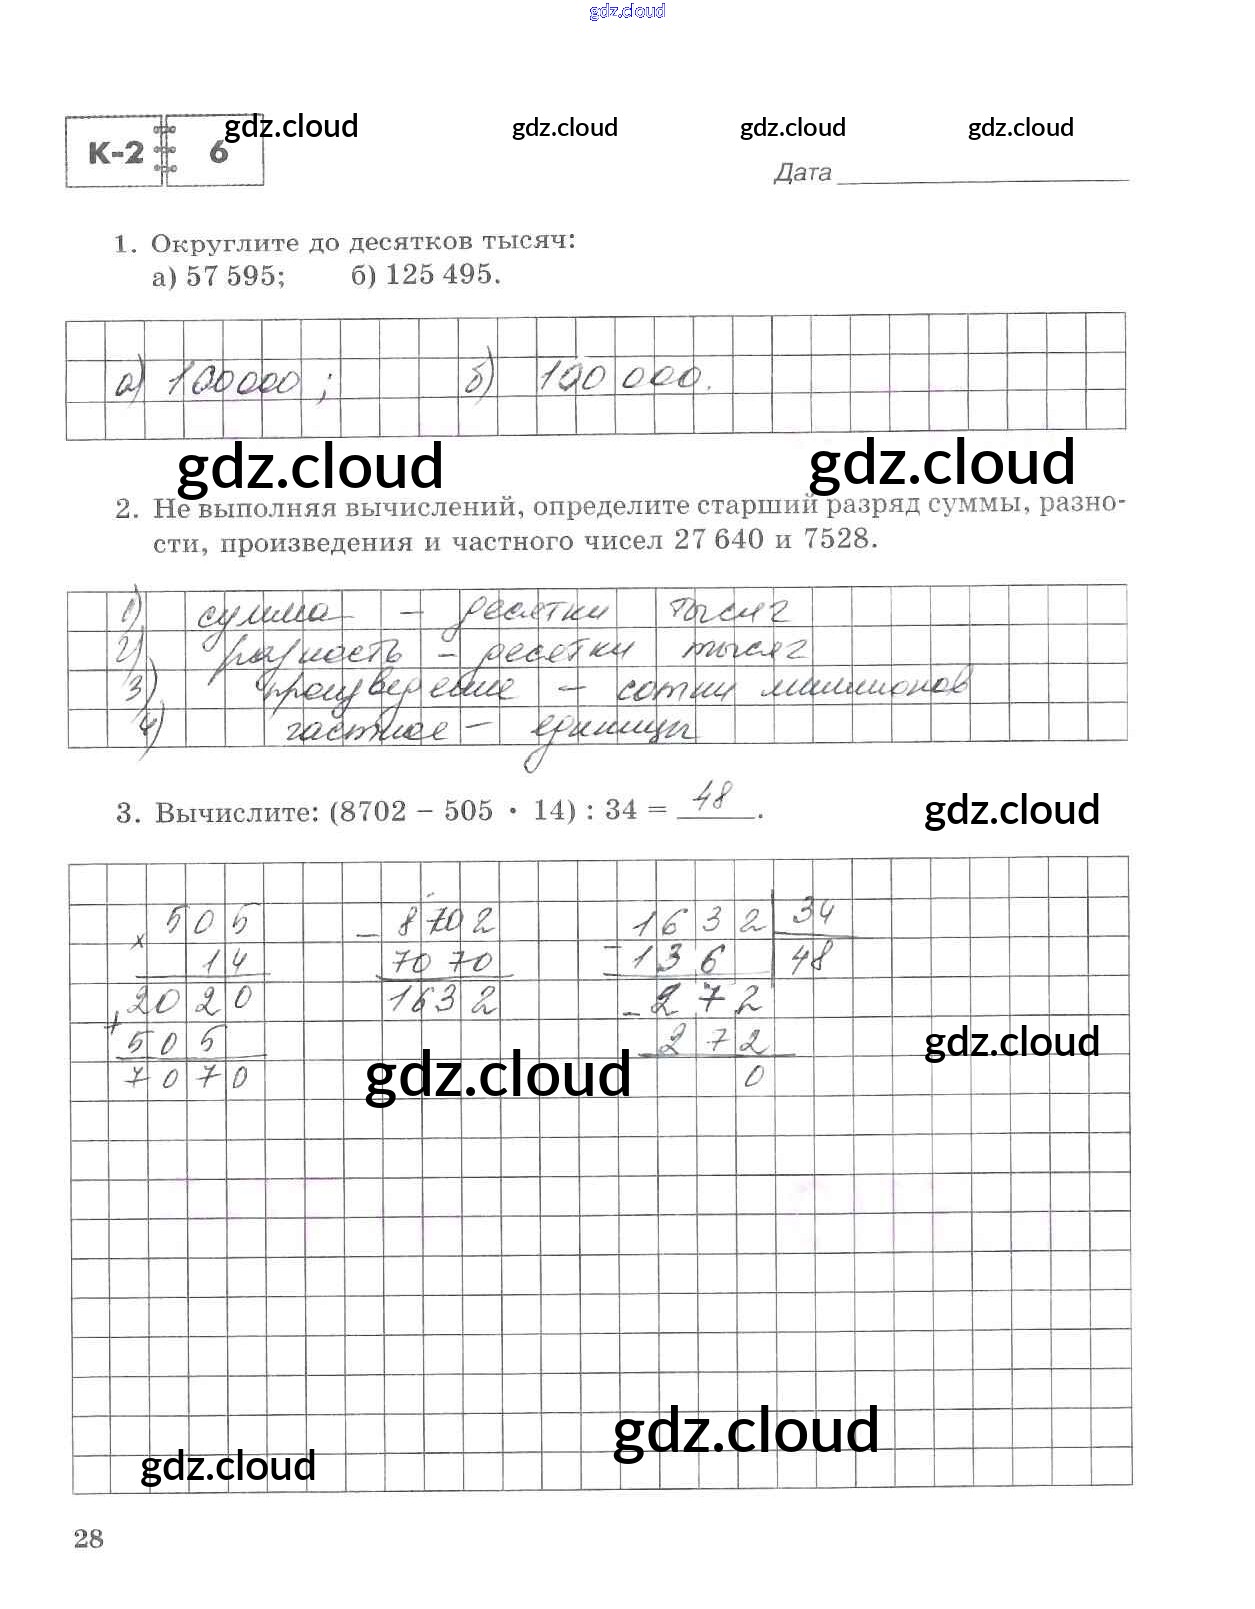 gdz.cloud
К-2 6 gdz.cloud gdz.cloud gdz.cloud gdz.cloud
Дата
1. Округлите до десятков тысяч:
а) 57 595; б) 125 495.
а) 100000; б) 100 000.
gdz.cloud gdz.cloud
2. Не выполняя вычислений, определите старший разряд суммы, разно-
сти, произведения и частного чисел 27 640 и 7528.
1) сумма – десятки тысяч
2) разность – десятки тысяч
3) произведение – сотни миллионов
4) частное – единицы
3. Вычислите: (8702 – 505 · 14) : 34 = 48.
gdz.cloud
505 – 8702 1632 34
х 14 7070 – 136 48
2020 1632 – 272
+ 505 272
7070 0
gdz.cloud
gdz.cloud
gdz.cloud
gdz.cloud
28